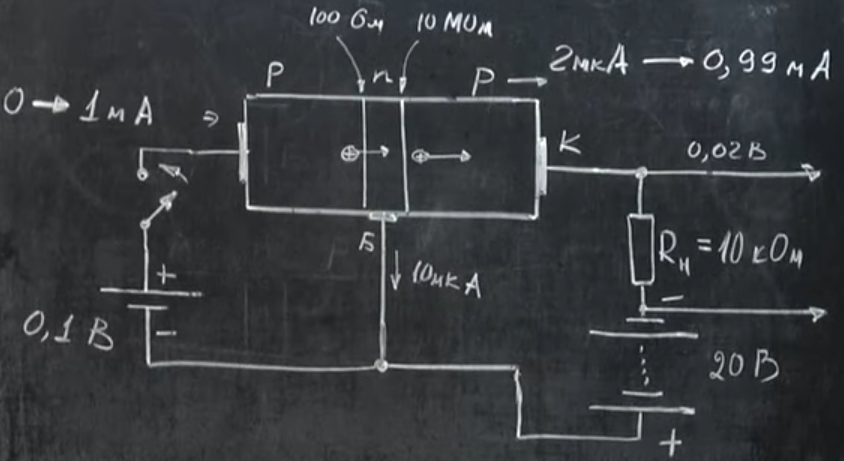 100 Ом 10 МОм
P n P 2мкА → 0,99 мА
0 → 1 мА Э
К 0,02 В
Б
Rн = 10 кОм
10мкА
+ −
0,1 В −
20 В
+